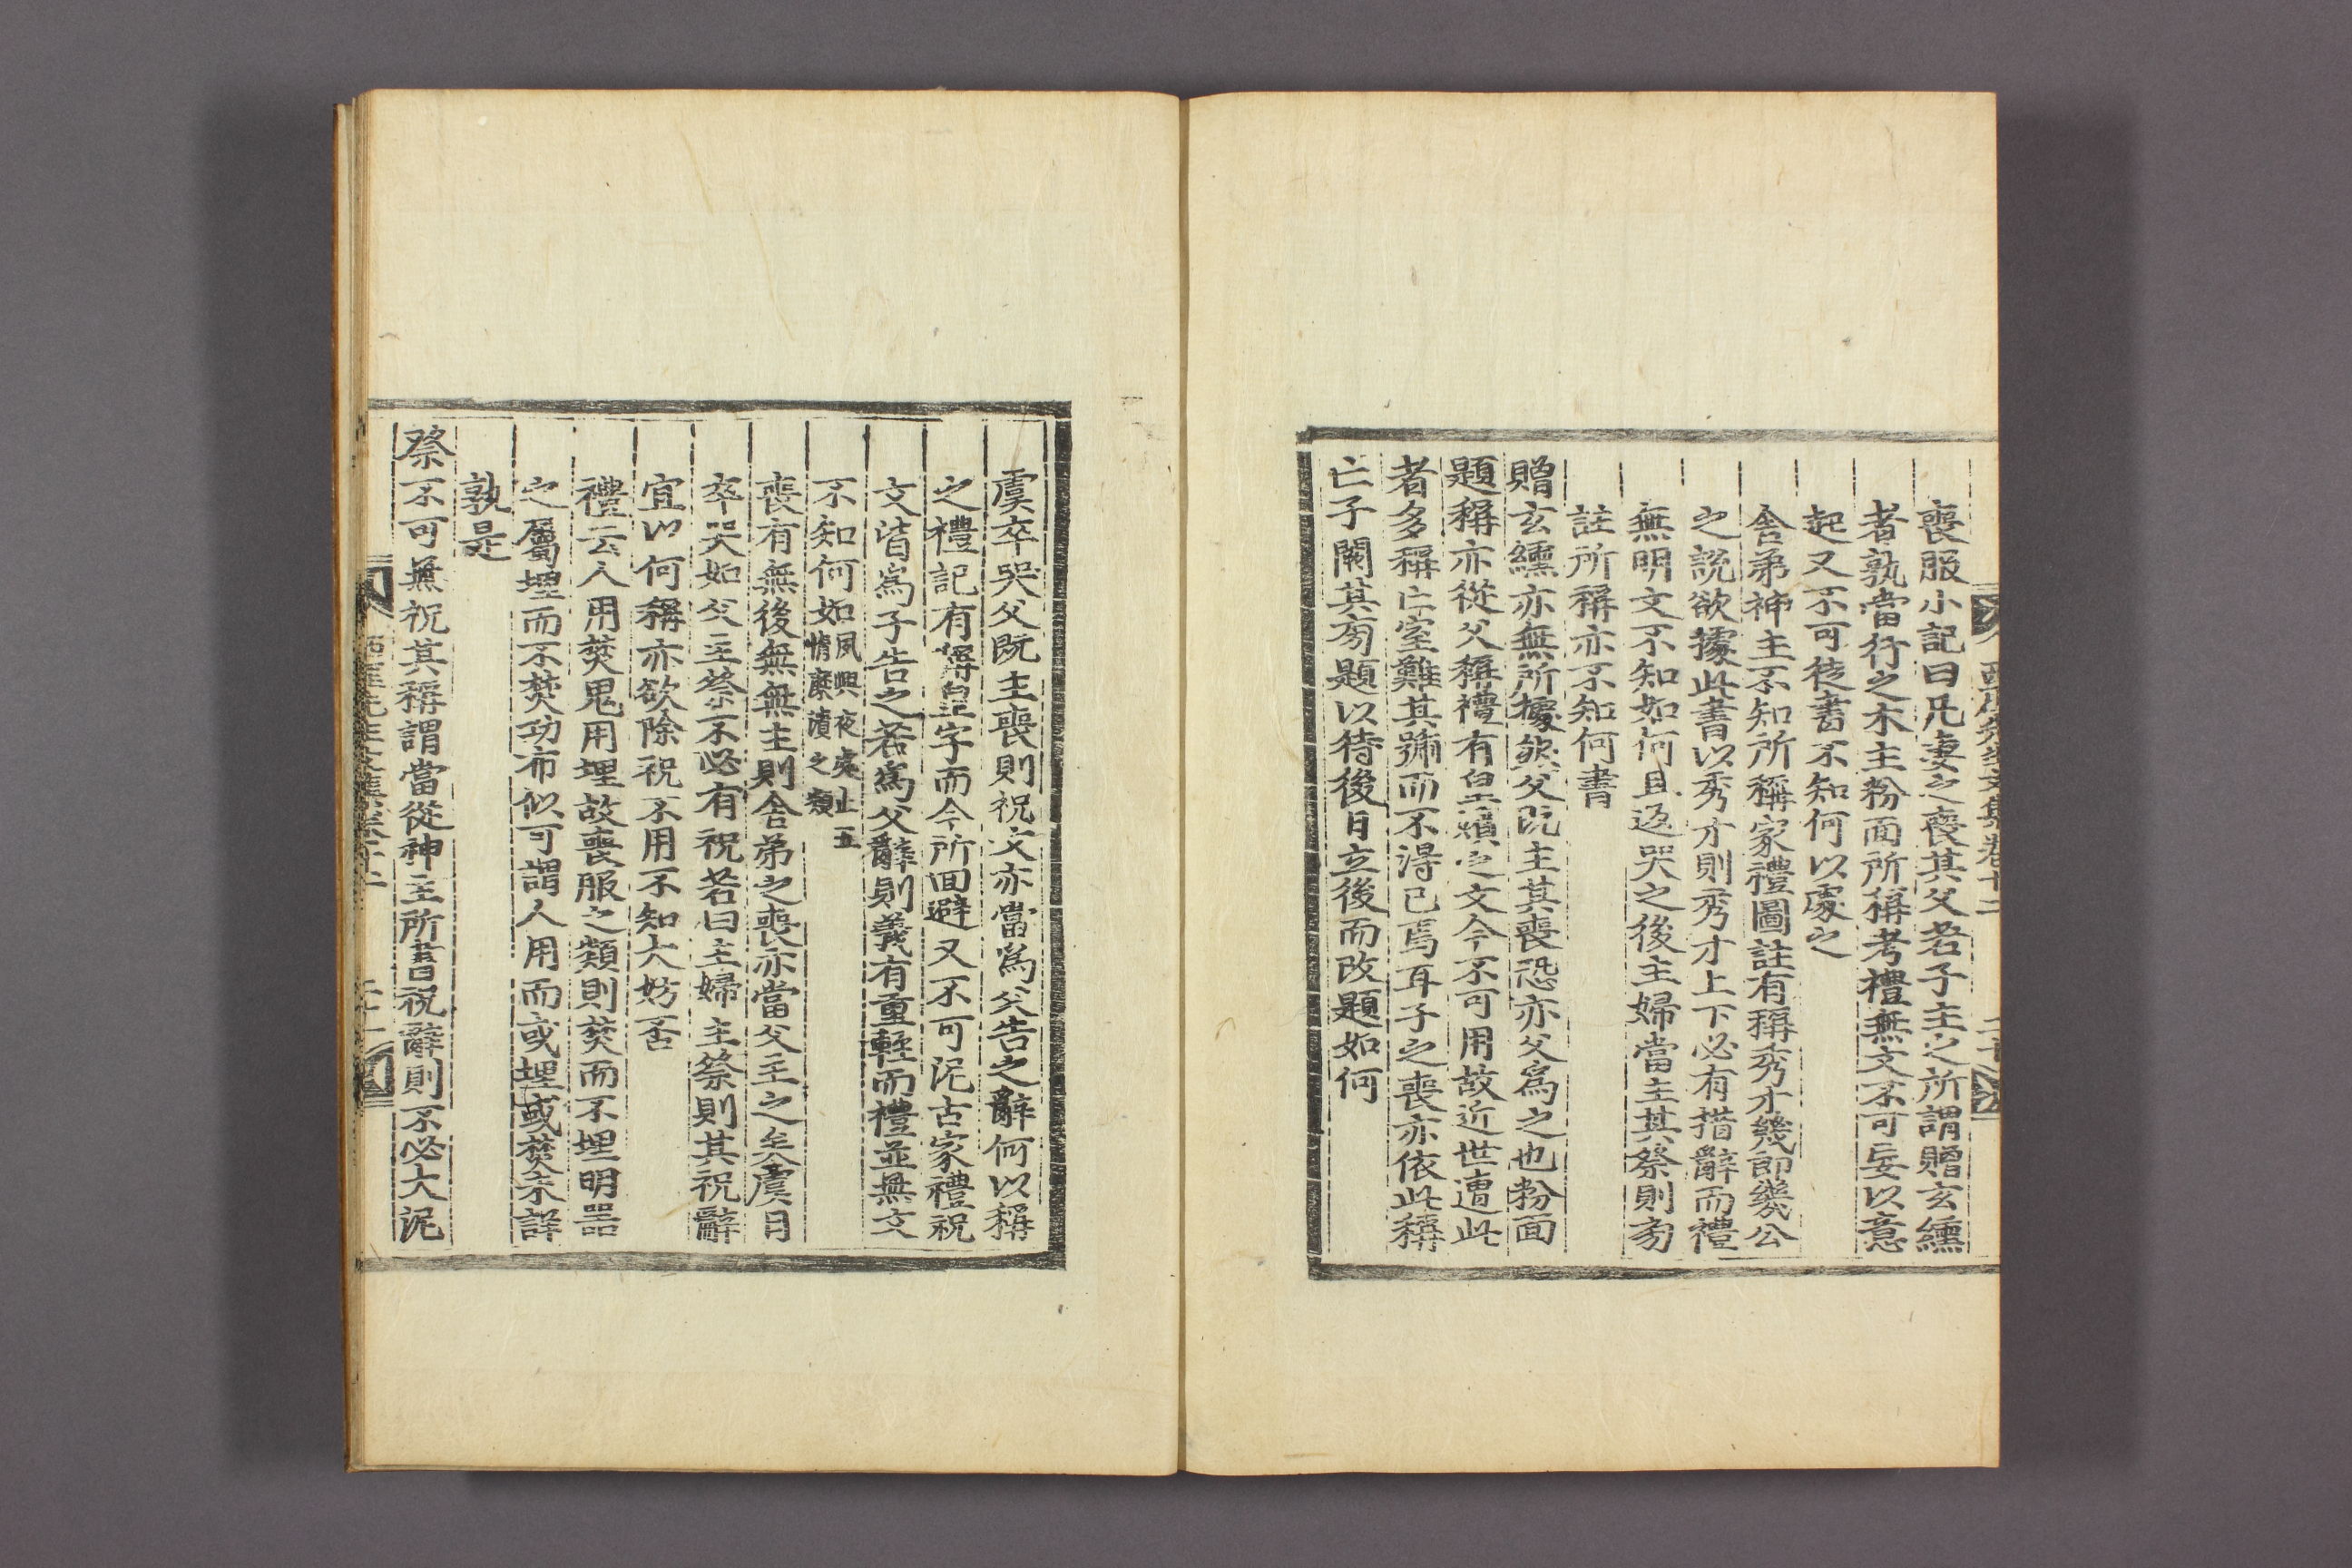 喪服小記曰凡妻之喪其父若子主之所謂贈玄纁
者孰當行之木主粉面所稱考禮無文不可妄以意
起又不可徒書不知何以處之
舍弟神主不知所稱家禮圖註有稱秀才幾郎幾公
之說欲據此書以秀才則秀才上下必有措辭而禮
無明文不知如何且返哭之後主婦當主其祭則旁
註所稱亦不知何書
贈玄纁亦無所據然父旣主其喪恐亦父爲之也粉面
題稱亦從父稱禮有皇嬪之文今不可用故近世遭此
者多稱亡室雖其號而不得已焉耳子之喪亦依此稱
亡子闕其旁題以待後日立後而改題如何
虞卒哭父旣主喪則祝文亦當爲父告之辭何以稱
之禮記有皇字而今所回避又不可泥古家禮祝
文皆爲子告之若爲父辭則義有重輕而禮並無文
不知何如夙興夜處止五情糜潰之類
喪有無後無無主則舍弟之喪亦當父主之矣虞月
卒哭如父主祭不必有祝若曰主婦主祭則其祝辭
宜以何稱亦欲除祝不用不知大妨否
禮云人用焚鬼用埋故喪服之類則焚而不埋明器
之屬埋而不焚功布似可謂人用而或埋或焚未詳
孰是
祭不可無祝其稱謂當從神主所書祝辭則不必大泥